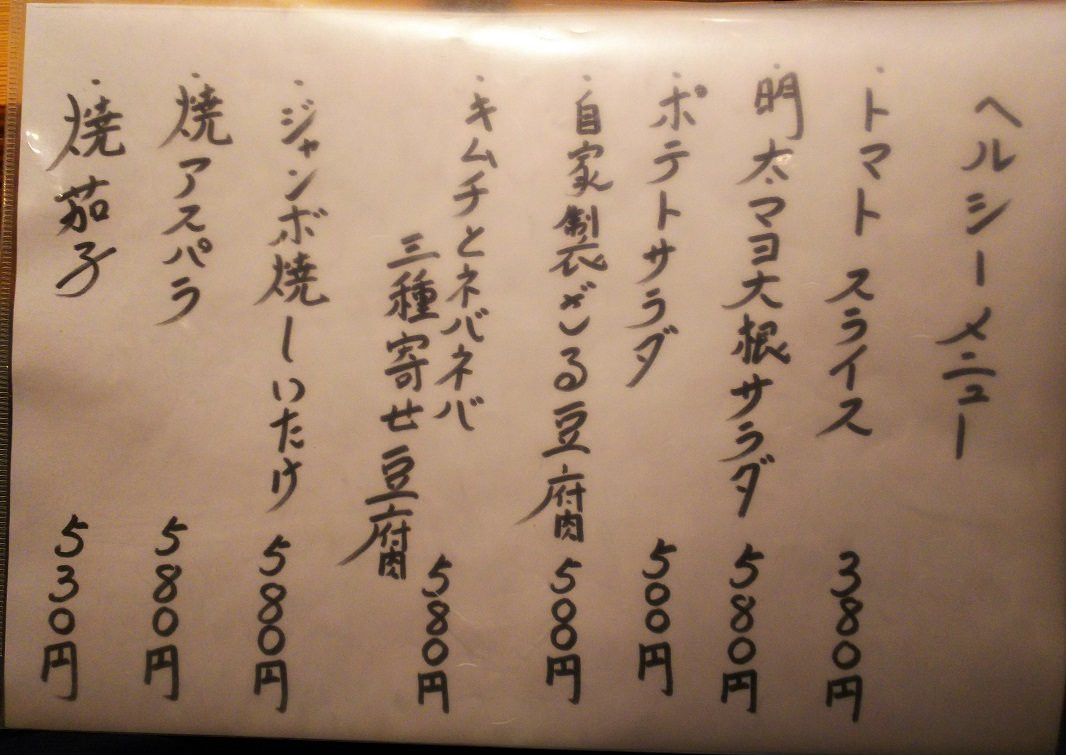 ヘルシーメニュー
・トマトスライス 380円
・明太マヨ大根サラダ 580円
・ポテトサラダ 500円
・自家製ざる豆腐 500円
・キムチとネバネバ
三種寄せ豆腐 580円
・ジャンボ焼しいたけ 580円
・焼アスパラ 580円
・焼茄子 530円